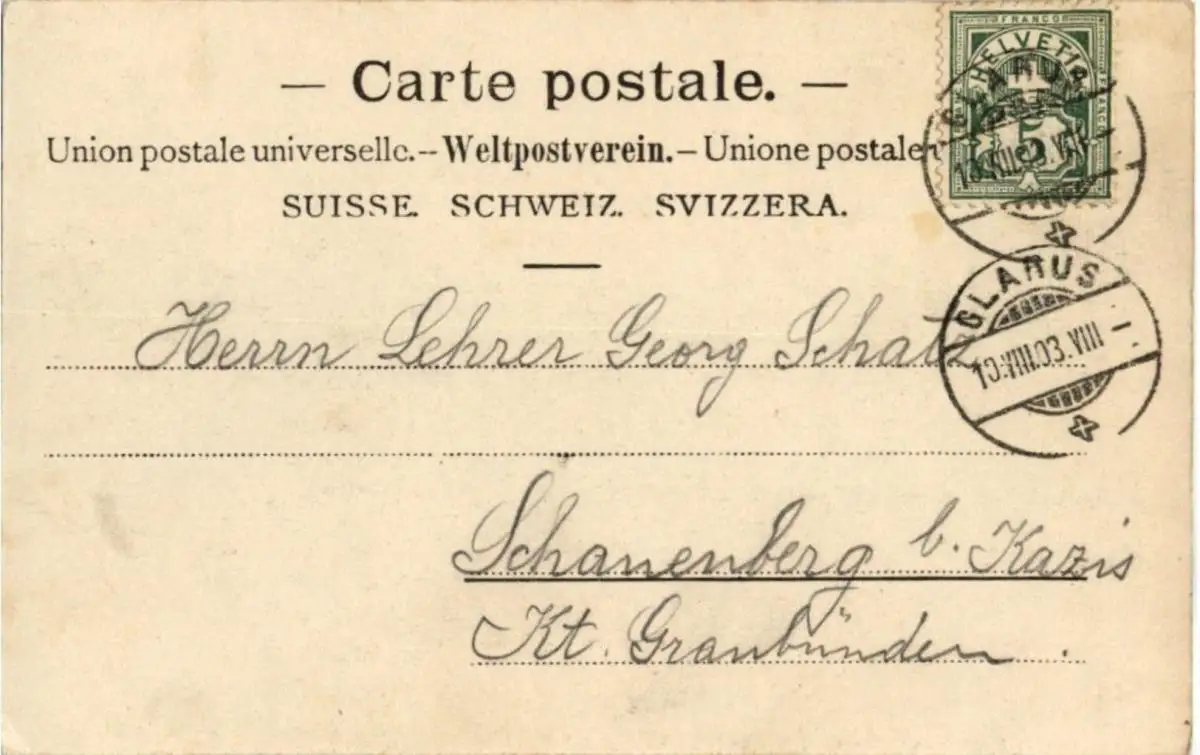 FRANCO
HELVETIA
— Carte postale. —
Union postale universelle.-- Weltpostverein. – Unione postale
SUISSE. SCHWEIZ. SVIZZERA.
GLARUS
10.VIII.03.VIII
GLARUS
10.VIII.03.VIII –
Herrn Lehrer Georg Schatz
Schauenberg b. Kazis
Kt. Graubünden.